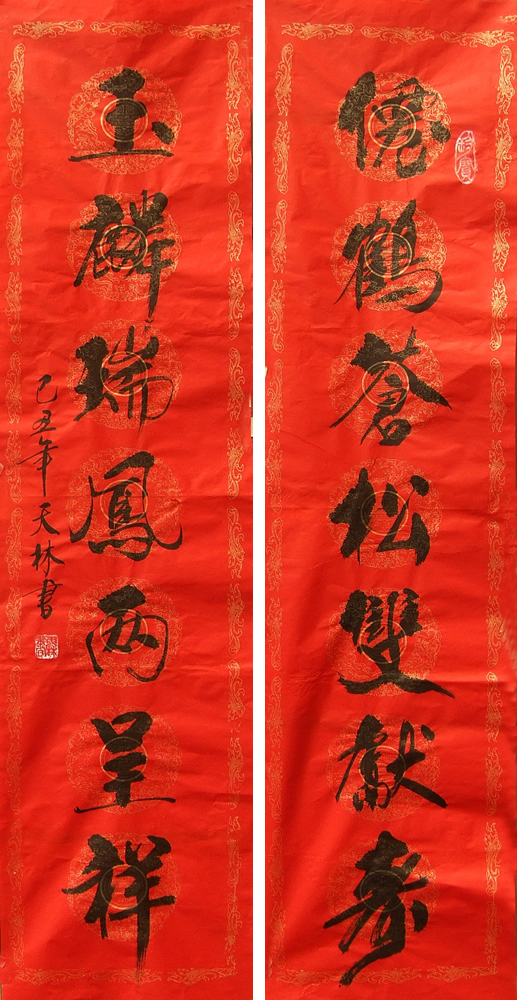 僊鶴蒼松雙獻壽
玉麟瑞鳳兩呈祥
己丑年天林書